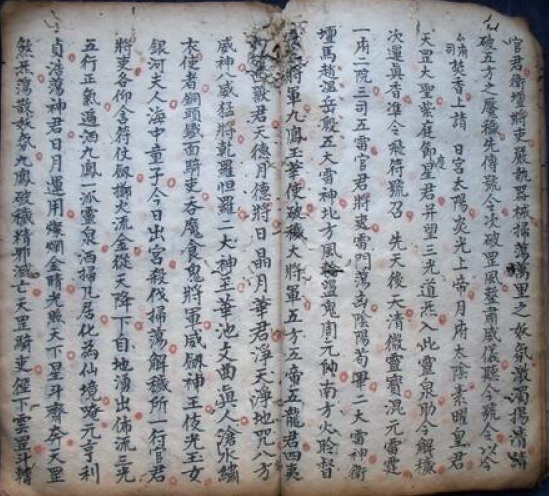 官君衛壇將吏嚴執器械掃蕩萬里之妖氛激濁揚清蕩
破五方之魘穢先傳號令次破罡風整肅威儀聽令號令以今
焚香上請 日宮太陽炎光上帝月府太陰素曜皇君
天罡大聖紫庭節度星君并望三光道炁入此靈泉助令解穢
次運真香準令飛符號召 先天後天清微靈寶混元雷霆
一府二院三司五雷官君將吏雷門蕩凶陰陽苟畢二大雷神衛
壇馬趙溫岳殷五大雷神北方風輪溫鬼周元帥南方火聆督
將軍九鳳玉華使破穢大將軍五方五帝五龍君四夷
獸君天德月德將日晶月華君淨天淨地咒八方
威神八威猛將乾羅怛羅二大神王華池丈曲真人滄水繡
衣使者銅頭鐵面騎吏吞魔食鬼將軍威劔神王伎光玉女
銀河夫人海中童子今日出宮殺伐掃蕩解穢所一行官君
將吏各仰含符仗劔擲火流金從天降下自地湧出佈流三光
五行正氣遍洒九鳳一派靈泉洒掃凡居化為仙境唵元亨利
貞浩蕩神君日月運用燦爛金晴光照天下星斗齊奔天罡
煞炁蕩散妖氛九鳳破穢精邪滅亡天罡騎吏徑下雲罡斗轉